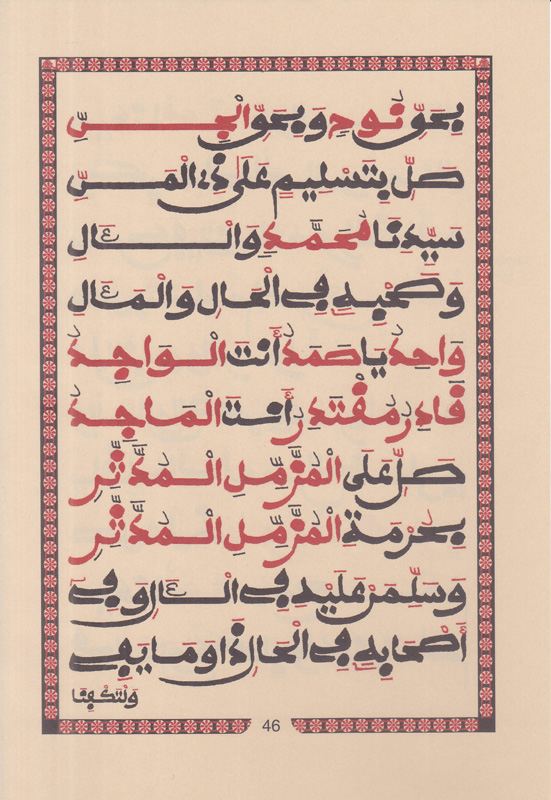 بِحَقِّ نُوحٍ وَبِحَقِّ الْجِــنِّ
صَلِّ بِتَسْلِيمٍ عَلَى ذِي الْمَــنِّ
سَيِّدِنَا مُحَمَّدٍ وَالْــآلِ
وَصَحْبِهِ فِي الْحَالِ وَالْمَــآلِ
وَاحِدُ يَا صَمَدُ أَنْتَ الْــوَاجِدُ
قَادِرُ مُقْتَدِرُ أَنْتَ الْمَاجِدُ
صَلِّ عَلَى الْمُزَّمِّلِ الْــمُدَّثِّرِ
بِحُرْمَةِ الْمُزَّمِّلِ الْــمُدَّثِّرِ
وَسَلِّمَنْ عَلَيْهِ فِي الْــآلِ وَفِي
أَصْحَابِهِ فِي الْحَالِ ذَا وَمَا يَفِي
وَلْتَكْفِنَا
46